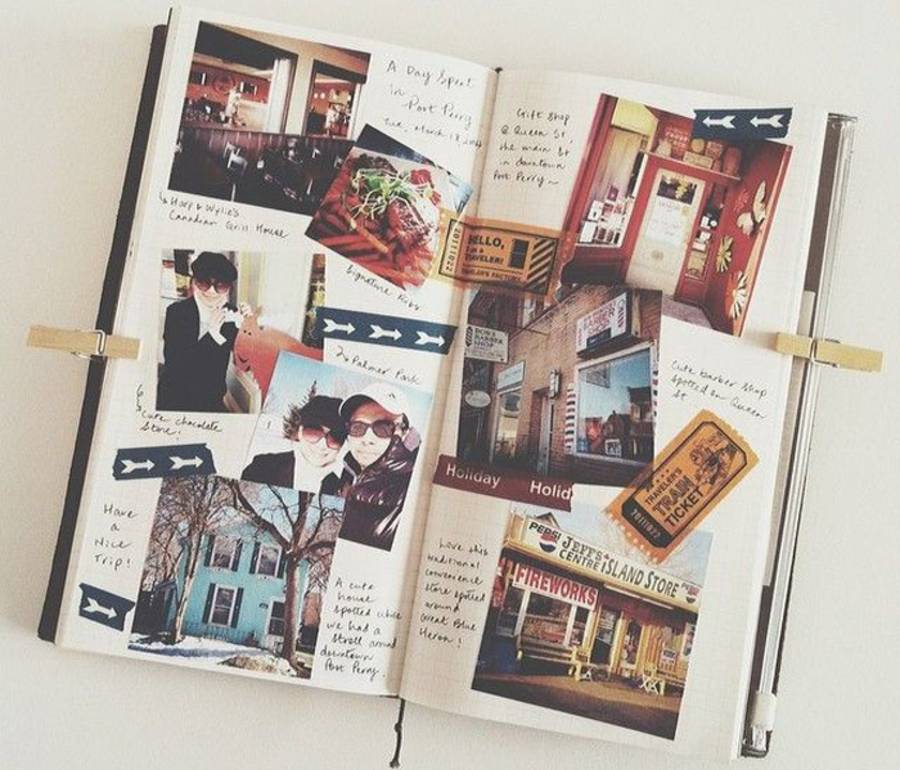 A Day Spent
in
Port Perry
Tue, March 18, 2014
Harp & Wylie's
Canadian Grill House
Signature Ribs
Palmer Park
Cute chocolate
Store!
Have
a
Nice
Trip!
A cute
house
spotted while
we had a
stroll around
downtown
Port Perry.
Gift Shop
@ Queen St,
the main St
in downtown
Port Perry~
20111022
HELLO,
I'M A
TRAVELER!
TRAVELER'S FACTORY
BARBER
SHOP
BARBER
Cute barber shop
spotted on Queen
St
Holiday Holid
TRAVELER'S
TRAIN
TICKET
20111022
Love this
traditional
convenience
store spotted
around
Great Blue
Heron!
PEPSI
JEFF'S
CENTRE ISLAND STORE
FIREWORKS